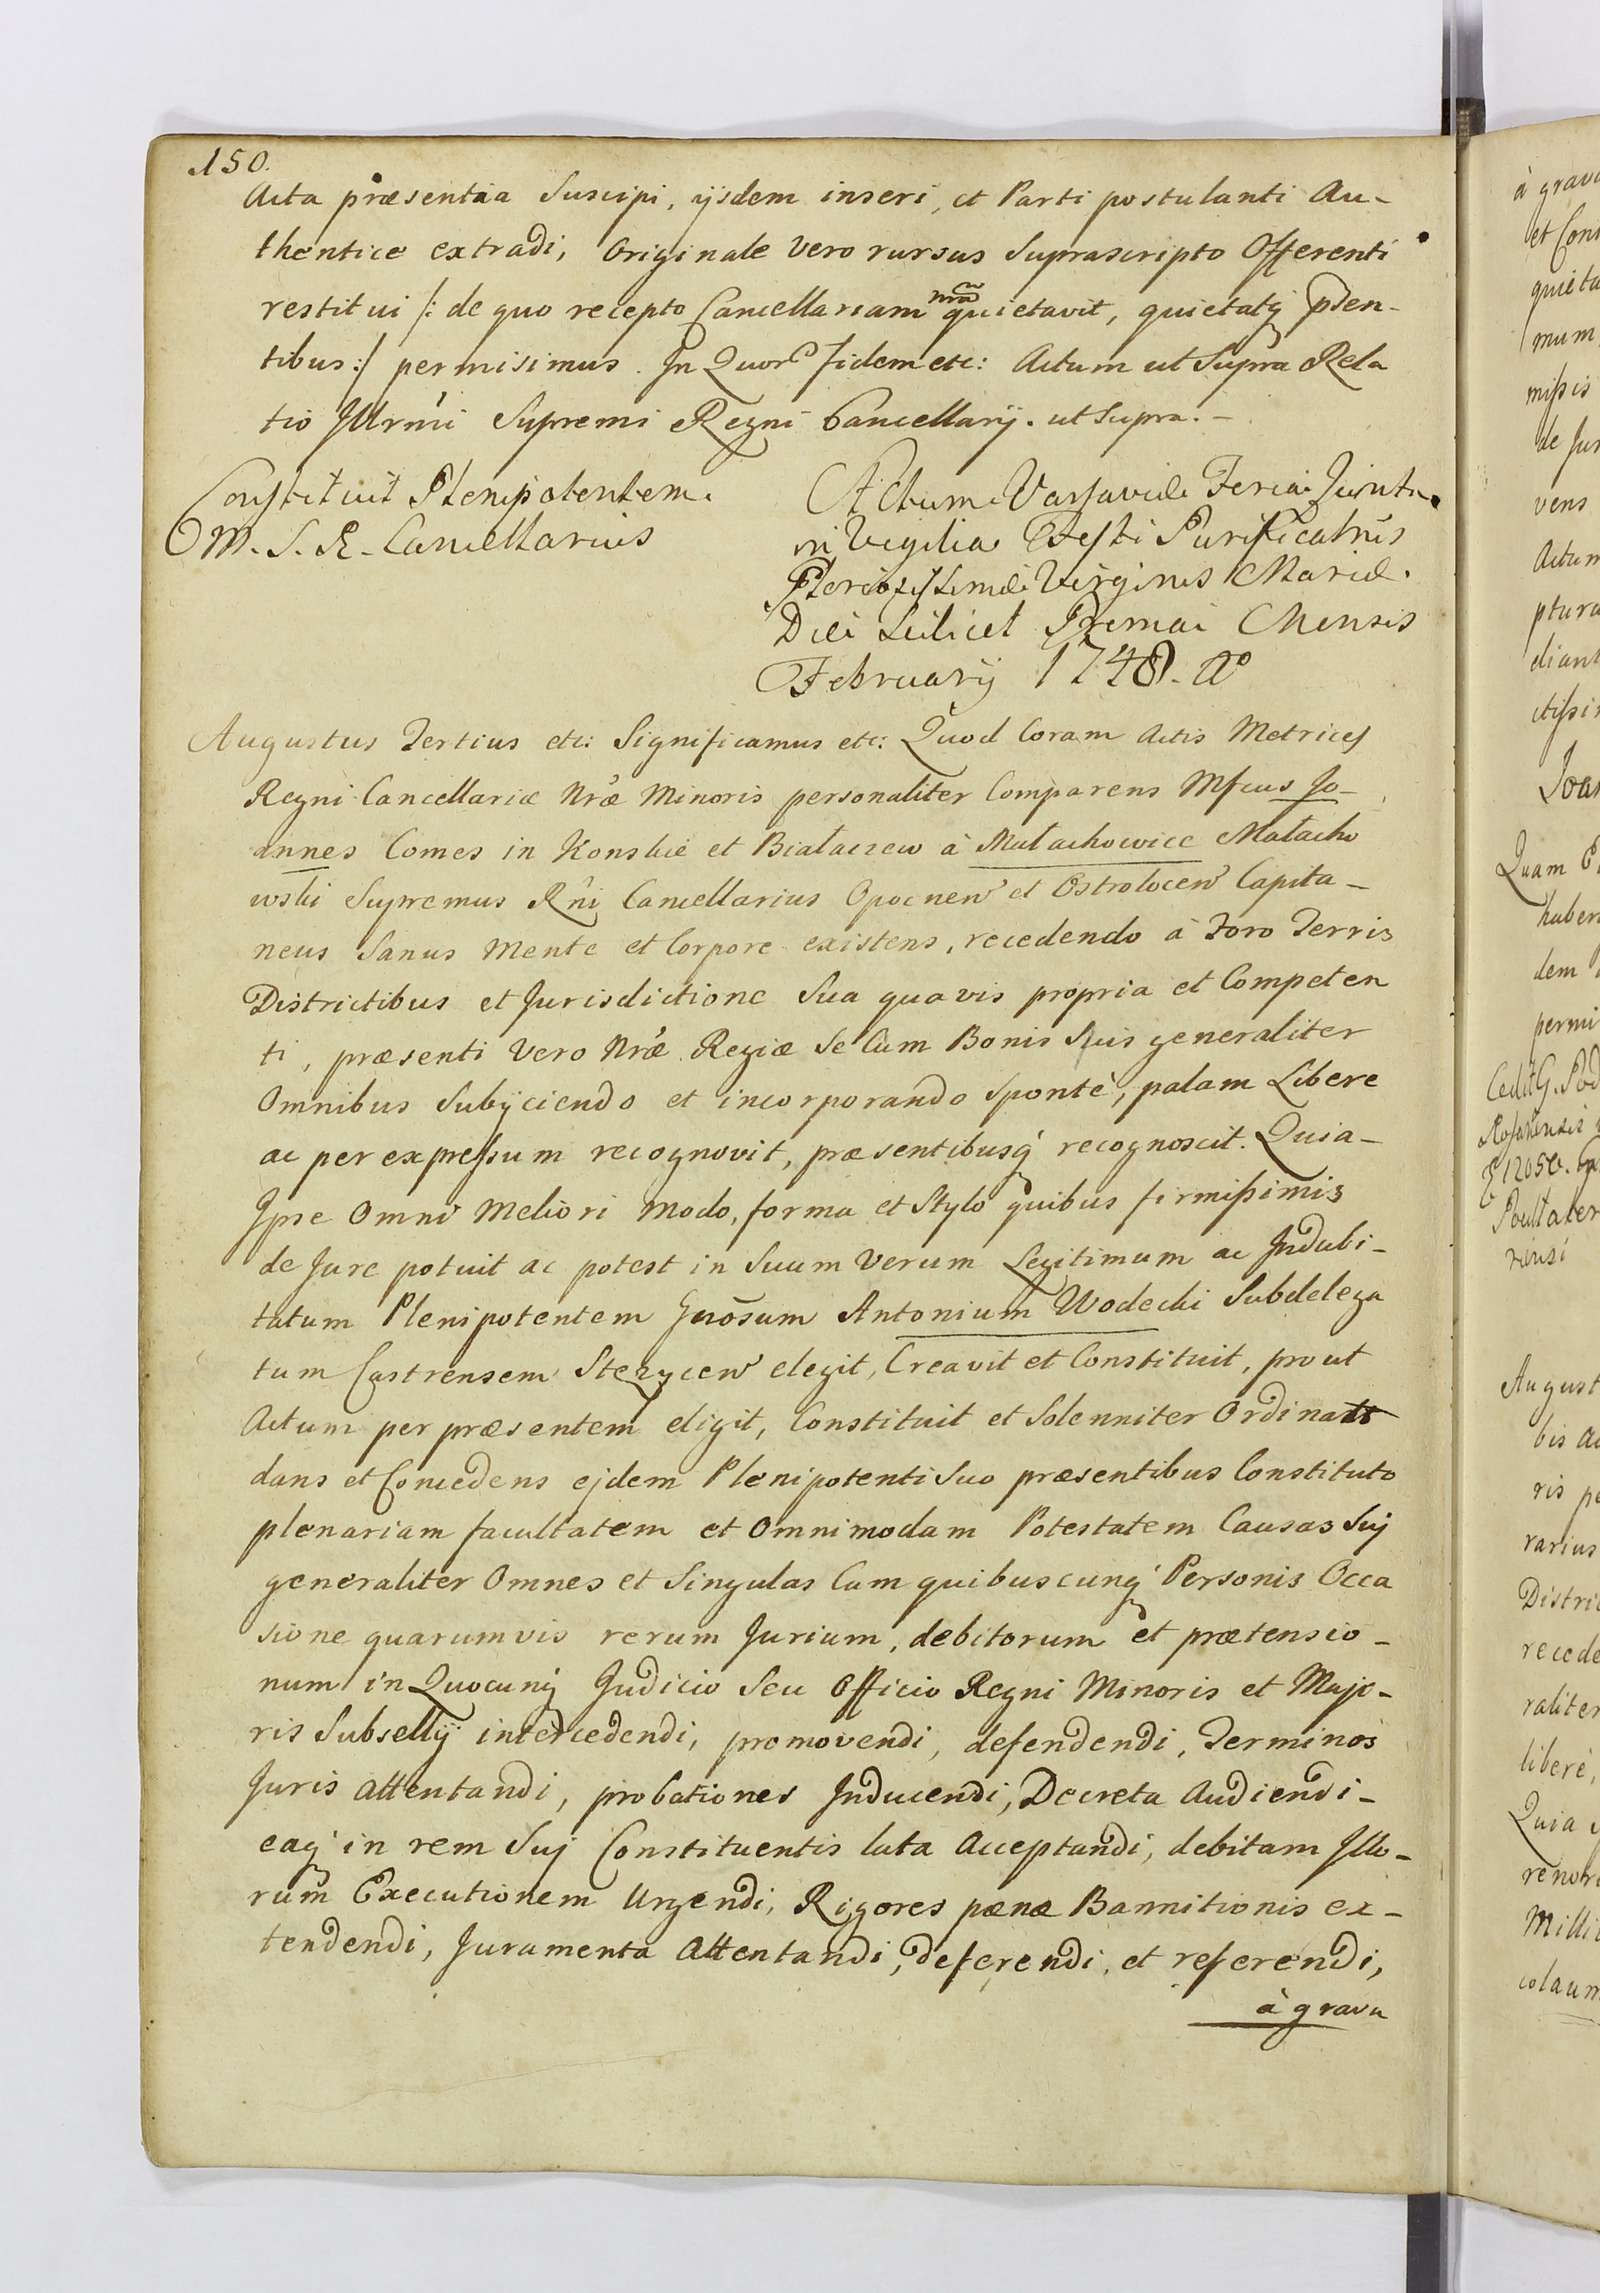 150.
Acta præsentia Suscipi, ijsdem inseri, et Parti postulanti Au-
thentice extradi, Originale vero rursus Suprascripto Offerenti
restitui /: de quo recepto Cancellariam nrãm quietavit, quietatq pñen-
tibus :/ permisimus. In Quor fidem etc: Actum ut Supra Rela
tio Illrmi Supremi Regni Cancellarij. ut Supra. -
Constituit Plenipotentem.
M. S. R. Cancellarius
Actum Varsaviæ Feria Quinta
in Vigilia Festi Purificatnis
Gloriosissimæ Virginis Mariæ.
Diei Scilicet Prima Mensis
February 1748. Ao
Augustus Tertius etc: Significamus etc: Quod Coram Actis Metrices
Regni Cancellariæ Nræ Minoris personaliter Comparens Mfcus Jo-
annes Comes in Konskie et Białaczew à Małachowice Małacho
wski Supremus Rni Cancellarius Opocnen et Ostrolocen Capita-
neus Sanus Mente et Corpore existens, recedendo à Foro Terris
Districtibus et Jurisdictione Sua quavis propria et Competen
ti, præsenti vero Nræ Regiæ Se Cum Bonis Suis generaliter
Omnibus Subijciendo et incorporando Sponté, palam Libere
ac per expressum recognovit, præsentibusq recognoscit. Quia-
Ipse Omni Meliori modo, forma et Stylo quibus firmissimis
de Jure potuit ac potest in Suum Verum Legitimum ac Indubi-
tatum Plenipotentem Gnosum Antonium Wodecki Subdelega
tum Castrensem Stezycen elegit, Creavit et Constituit, prout
Actum per præsentem eligit, Constituit et Solenniter Ordinat
dans et Concedens ejdem Plenipotenti Suo præsentibus Constituto
plenariam facultatem et Omnimodam Potestatem Causas Suj
generaliter Omnes et Singulas Cum quibuscunq Personis Occa
sione quarumvis rerum Jurium, debitorum et prætensio-
num in Quocunq Judicio Seu Officio Regni Minoris et Majo-
ris Subsellij intercedendi, promovendi, defendendi, Terminos
Juris attentandi, probationes Inducendi, Decreta Audiendi-
eaq in rem Suj Constituentis lata Acceptandi, debitam Illo-
rum Executionem Urgendi, Rigores pænæ Bannitionis ex-
tendendi, Juramenta Attentandi, deferendi, et referendi,
à grava